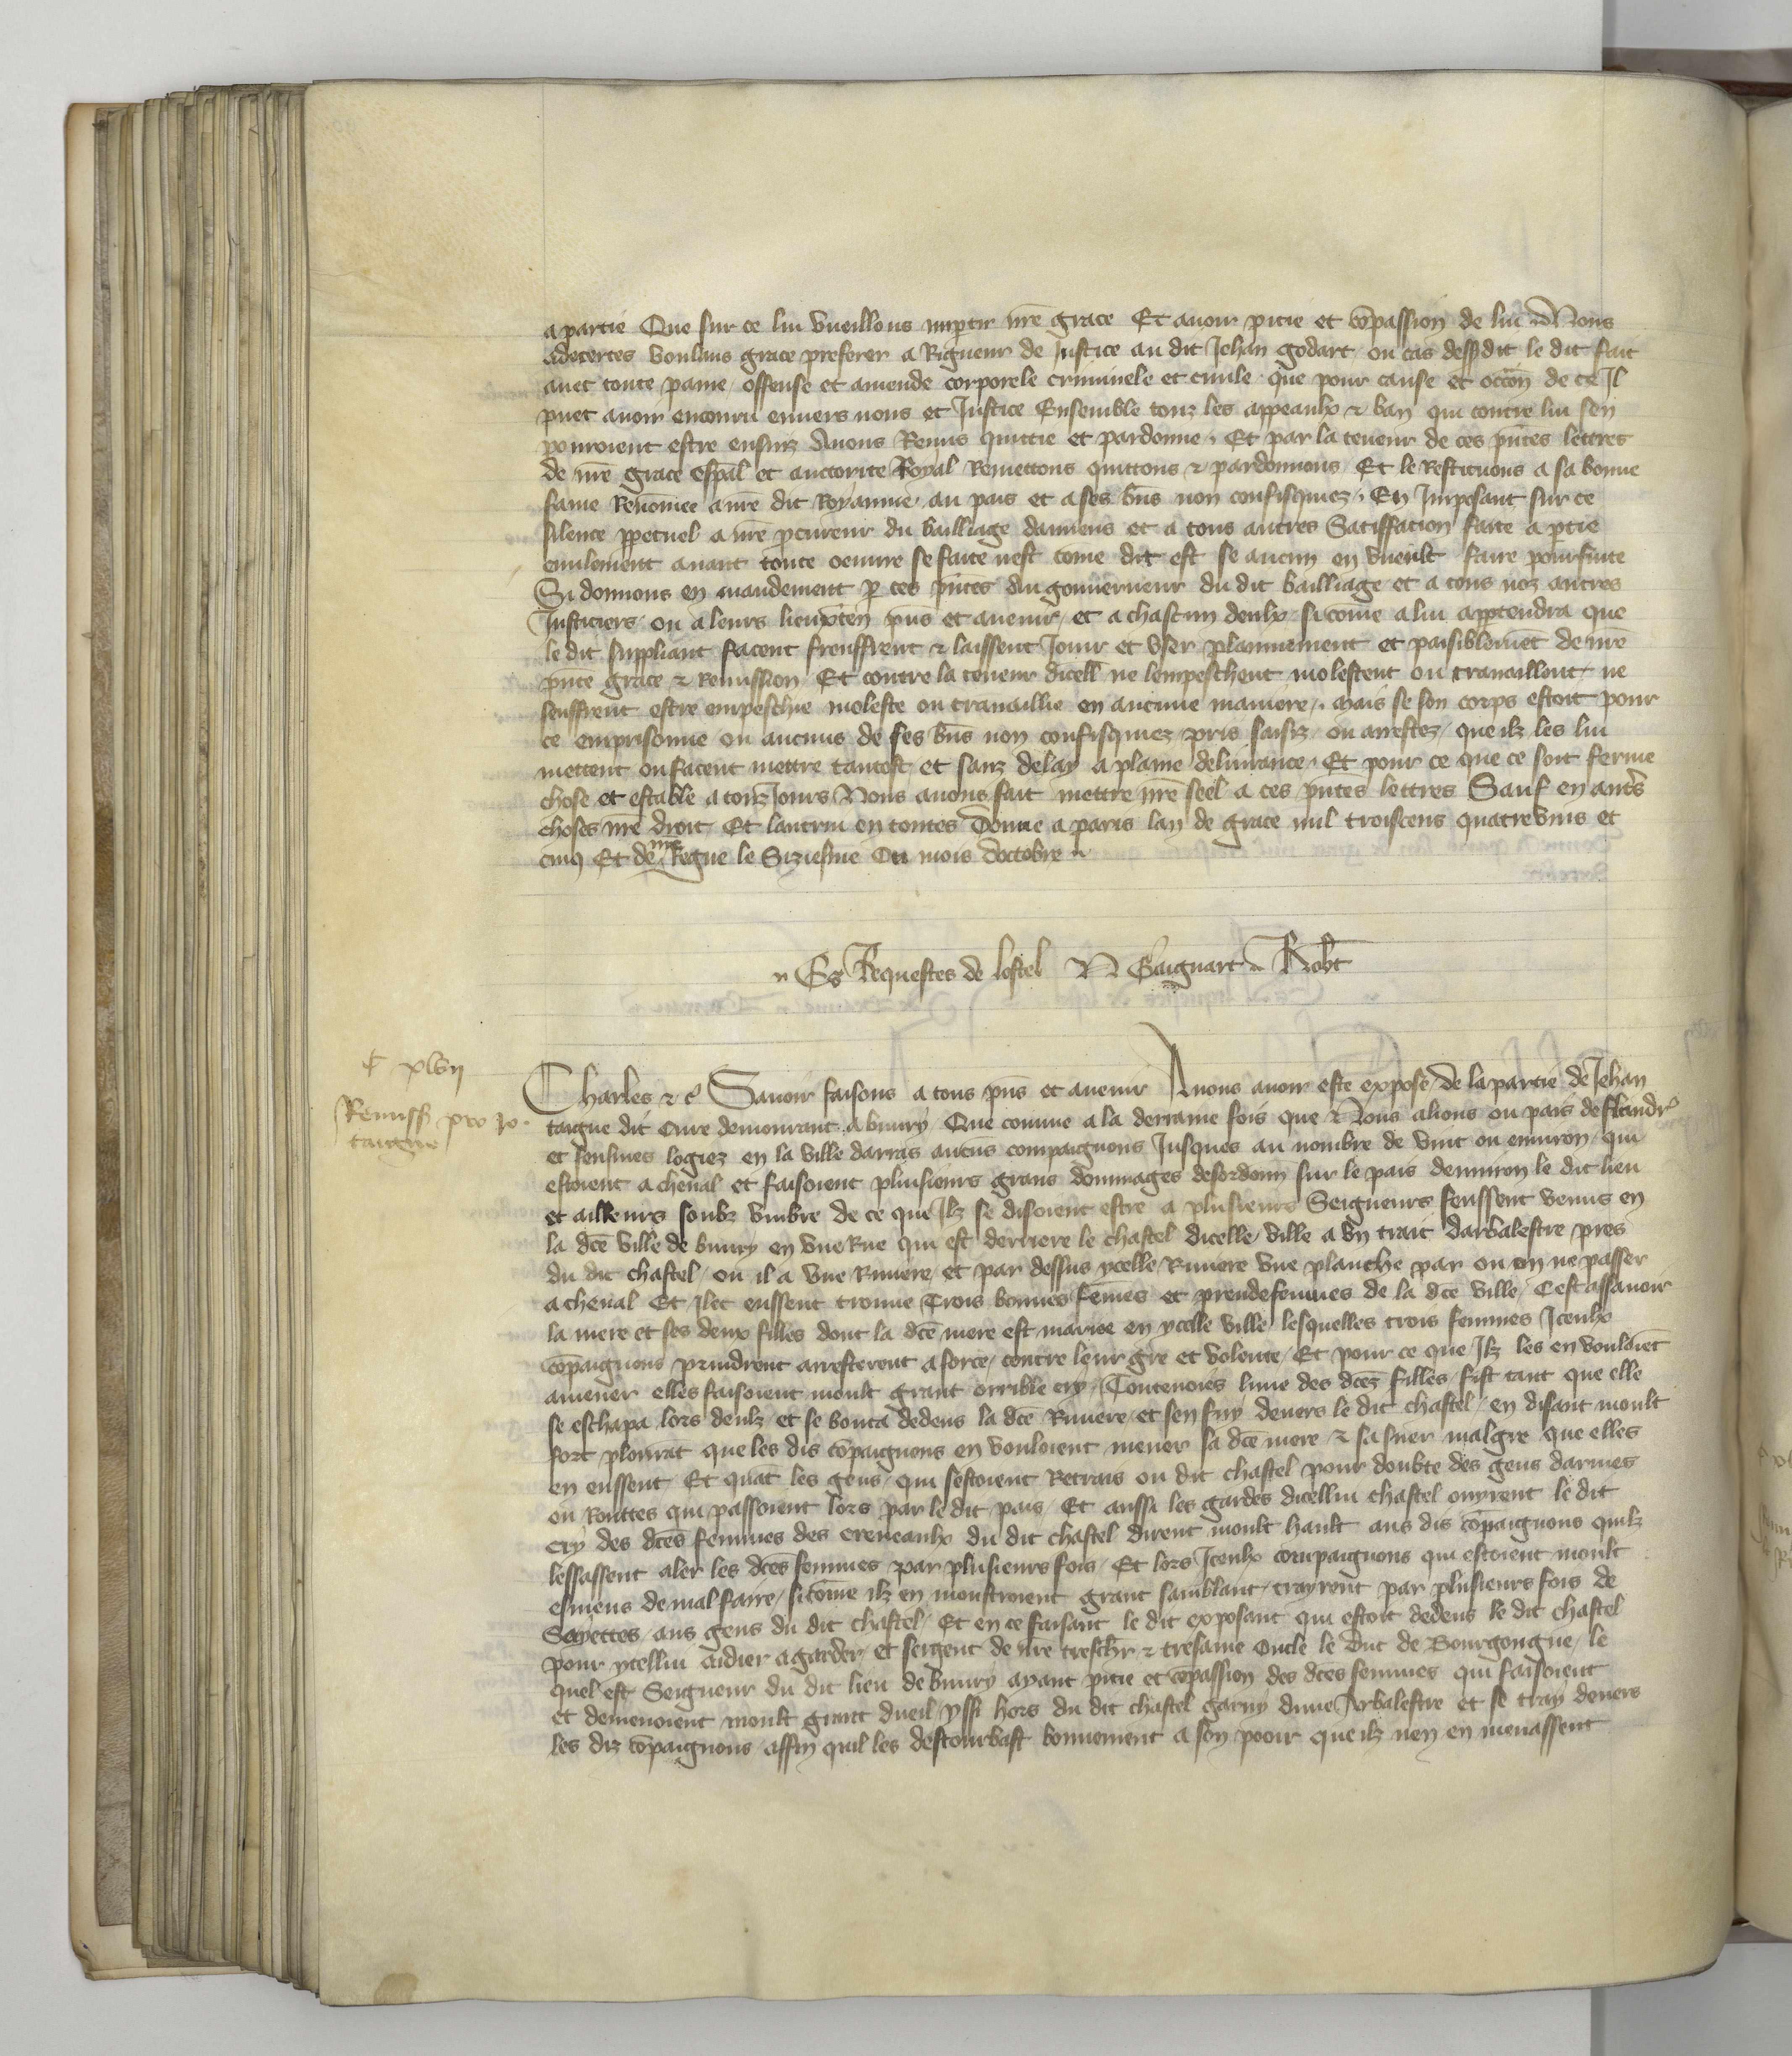 a partie Que sur ce lui vueillons impartir nr̄e grace Et auoir pitie et cōpassion de lui Nous
adecertes voulans grace preferer a Rigueur de Justice au dit Jehan godart ou cas dessusdit le dit fait
auec toute paine offense et amende corporele criminele et ciuile que pour cause et occōn de ce Il
puet auoir encouru enuers nous et Justice Ensemble touz les appeaulx & ban qui contre lui sen
pourroient estre ensuiz Auons Remis quittie et pardonne Et par la teneur de ces pn̄tes lettres
de nr̄e grace esp̄al et auctorite Royal Remettons quittons & pardonnons Et le Restituons a sa bonne
fame Renōmee a nr̄e dit Royaume au pais et a ses bn̄s non confisquez En Imposant sur ce
silence ꝑpetuel a nr̄e ꝓcureur du bailliage damiens et a tous autres Satiffacion faite a ꝑtie
ciuilement auant toute oeuure se faite nest cōme dit est se aucun en vueult faire poursuite
Si donnons en mandement ꝑ ces pn̄tes au gouuerneur du dit bailliage et a tous noz autres
Justiciers ou a leurs lieuxten̄ pn̄s et auenir et a chascun deulx si cōme a lui appartendra que
le dit suppliant facent seuffrent & laissent Jouir et vser plainnement et paisiblemēt de nr̄e
pn̄te grace & Remission Et contre la teneur dicell̄ ne lempeschent molestent ou trauaillent ne
seuffrent estre empeschie moleste ou trauaillie en aucune maniere mais se son corps estoit pour
ce emprisonne ou aucuns de ses bn̄s non confisquez pris saisiz ou arrestez que ilz les lui
mettent ou facent mettre tantost et sanz delay a plaine deliurance Et pour ce que ce soit ferme
chose et estable a touz Jours Nous auons fait mettre nr̄e seel a ces pn̄tes lettres Sauf en autr̄s
choses nr̄e droit Et lautrui en toutes Donne a paris lan de grace mil troiscens quatrevins et
cinq Et de nr̄e Regne le Siziesme Ou mois doctobre
Es Requestes de lostel N Gaignart Rob̄t
C xlvij
Remiss̄ pro Jo.
taigue
Charles &c̄ Sauoir faisons a tous pn̄s et auenir A nous auoir este expose de la partie de Jehan
taigue dit Cure demourant a buury Que comme a la derraine fois que Nous alions ou pais de flandr̄
et feusmes logiez en la ville darras aucūs compaignons Jusques au nombre de vint ou enuiron qui
estoient a cheual et faisoient plusieurs grans dommages desordonn̄ sur le pais denuiron le dit lieu
et ailleurs soubz vmbre de ce que Ilz se disoient estre a plusieurs Seigneurs feussent venus en
la dc̄e ville de buury en vne Rue qui est derriere le chastel dicelle ville a vn trait darbalestre pres
du dit chastel ou il a vne Riuiere et par dessus ycelle Riuiere vne planche par ou on ne passer
a cheual Et Ilec eussent trouue Trois bonnes fēmes et preudefemmes de la dc̄e ville Cestassauoir
la mere et ses deux filles dont la dc̄e mere est mariee en ycelle ville lesquelles trois femmes Iceulx
cōpaignons prindrent arresterent a force contre leur gre et volente Et pour ce que Ilz les en vouloiēt
amener elles faisoient moult grant orrible cry Toutevoies lune des dc̄ez filles fist tant que elle
se eschapa lors deulz et se bouta dedens la dc̄e Riuiere et sen fuy deuers le dit chastel en disant moult
fort plourāt que les dis cōpaignons en vouloient mener sa dc̄e mere & sa suer malgre que elles
en eussent Et quāt les gens qui sestoient Retrais ou dit chastel pour doubte des gens darmes
ou Routtes qui passoient lors par le dit pais Et aussi les gardes dicellui chastel ouyrent le dit
cry des dc̄es femmes des creneaulx du dit chastel dirent moult hault aus dis cōpaignons quilz
lessassent aler les dc̄es femmes par plusieurs fois Et lors Iceulx compaignons qui estoient moult
esmeus de mal faire si cōme ilz en monstroient grant samblant trayrent par plusieurs fois de
Sayettes aus gens du dit chastel Et en ce faisant le dit exposant qui estoit dedens le dit chastel
pour ycellui aidier a garder et sergent de nr̄e treschr̄ & tresame Oncle le Duc de Bourgongne le
quel est Seigneur du dit lieu de buury ayant pitie et cōpassion des dc̄es femmes qui faisoient
et demenoient moult grant dueil yssi hors du dit chastel garny dune Arbalestre et se tray deuers
les diz cōpaignons affin quil les destourbast bonnement a son pooir que ilz nen en menassent